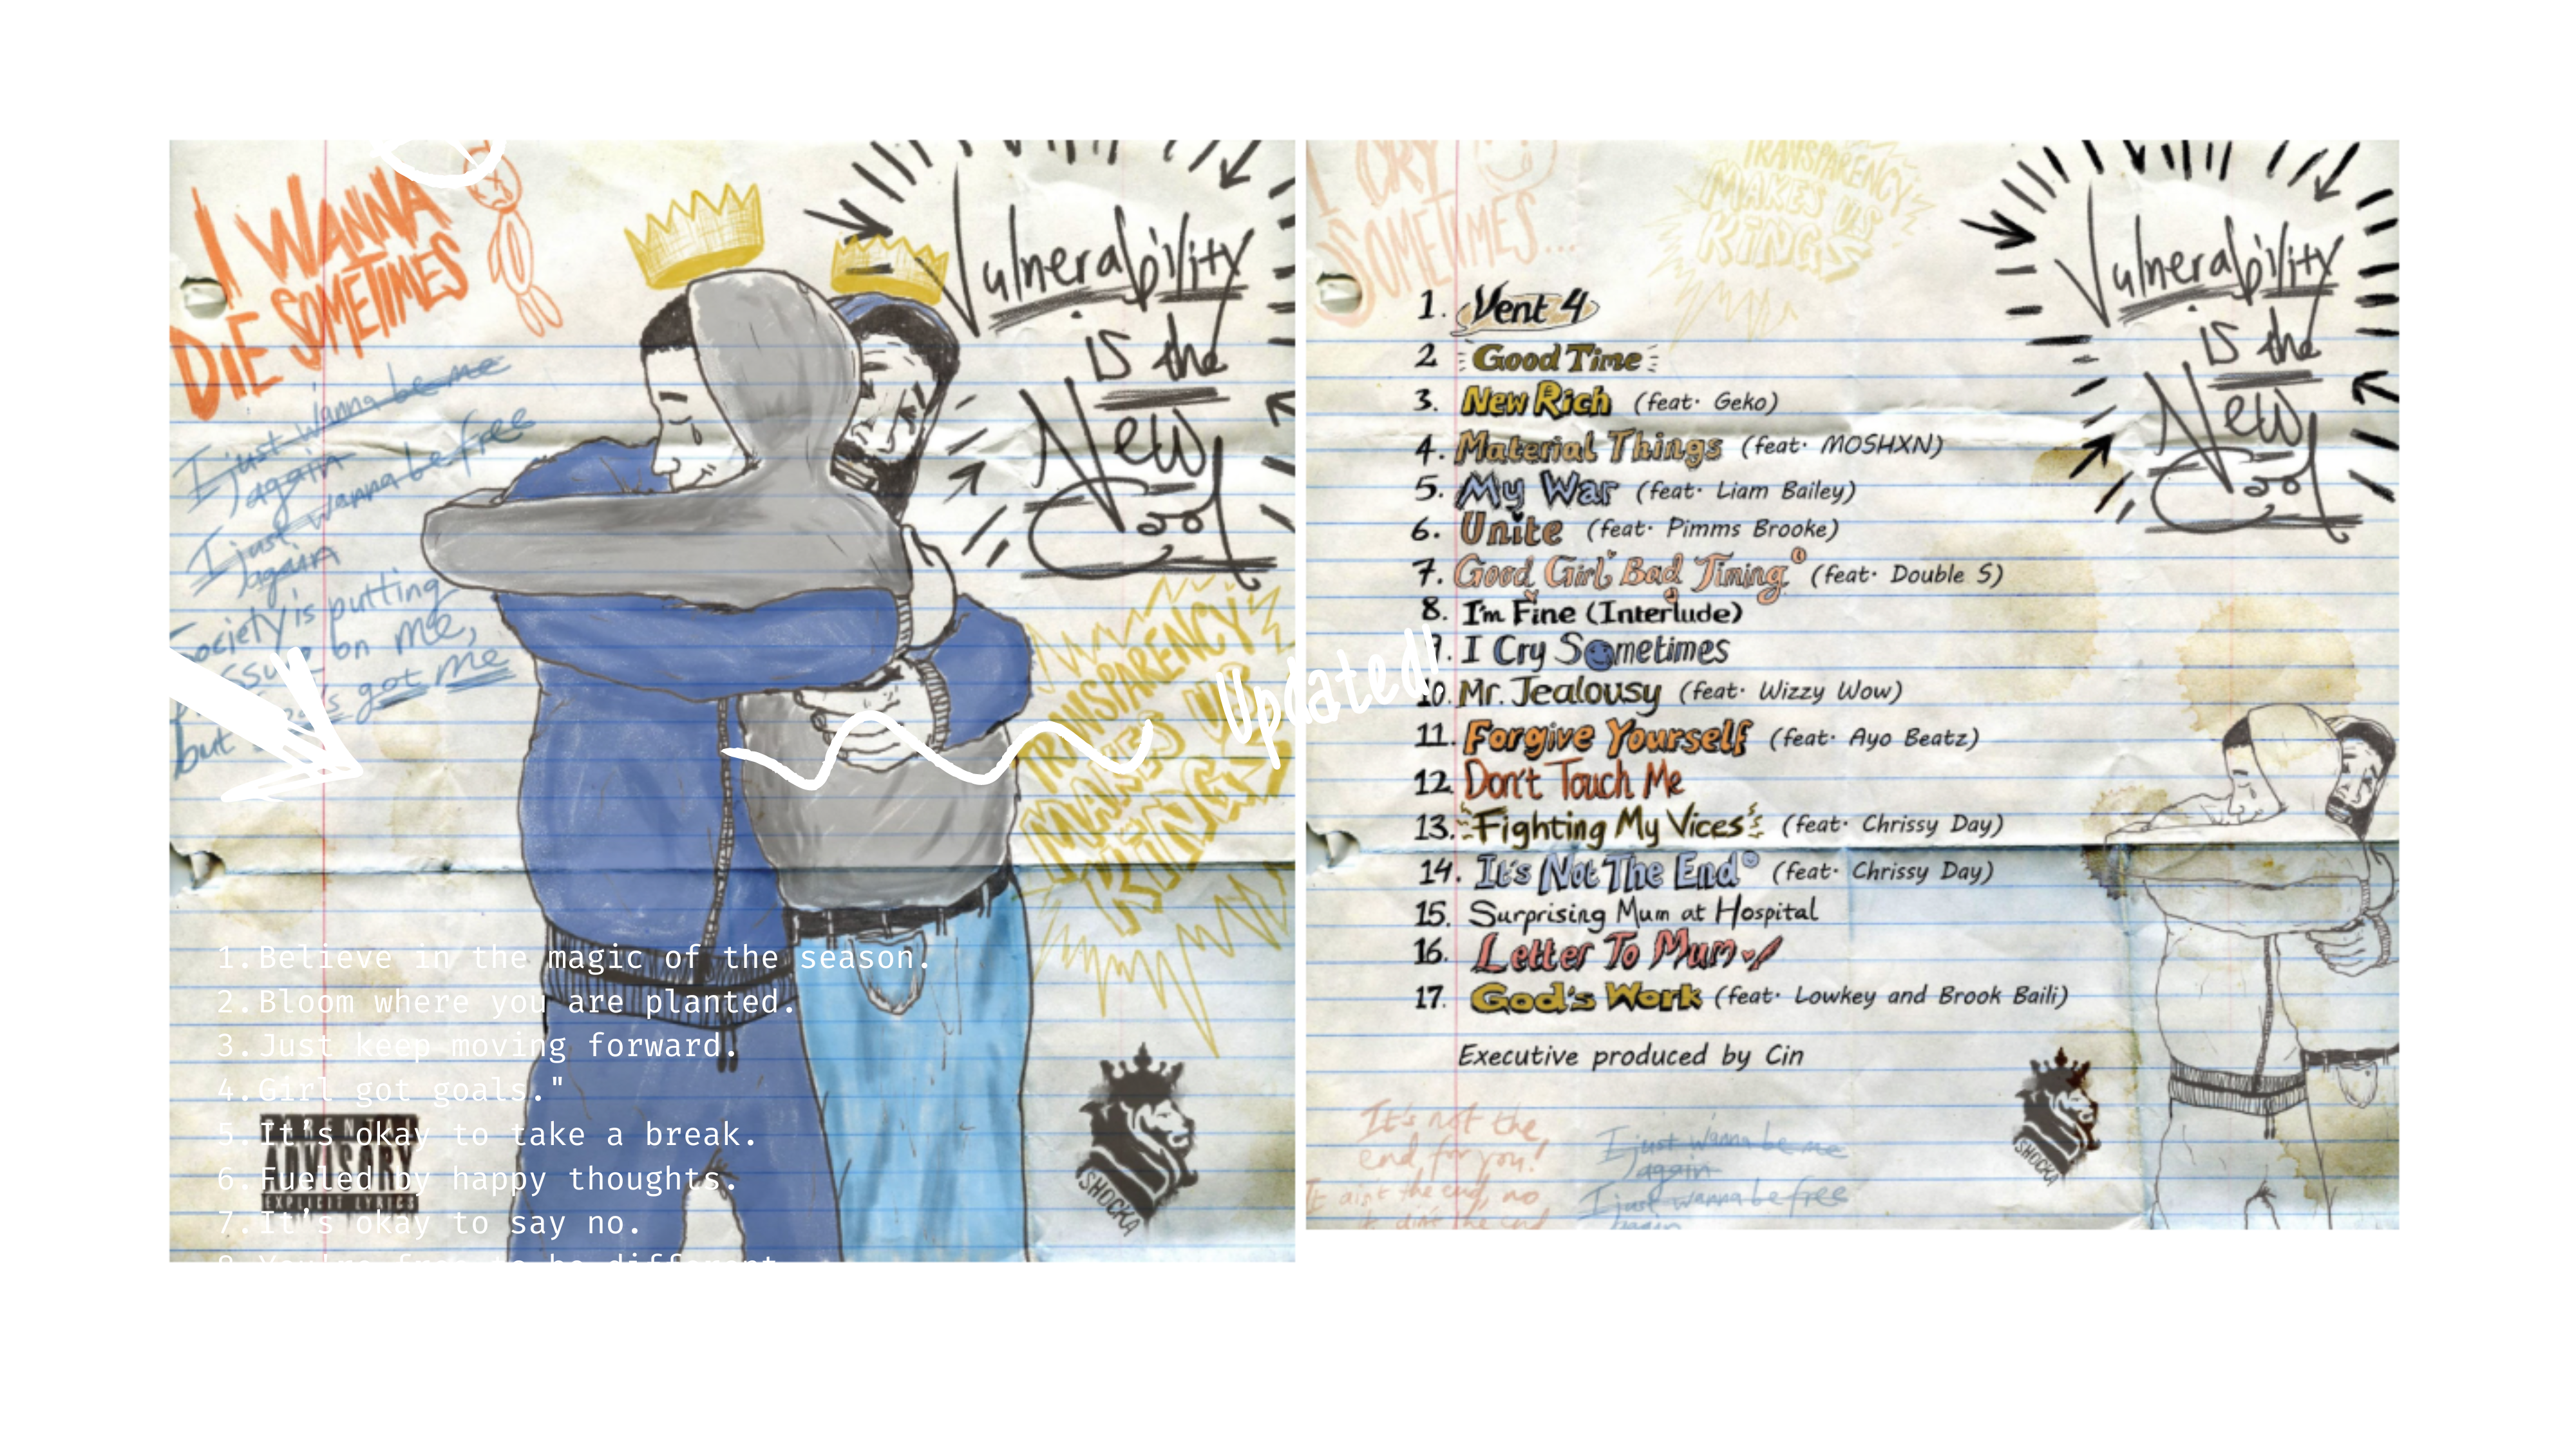 I WANNA
DIE SOMETIMES
I just wanna be me
again
I just wanna be free
again
Society is putting
on me,
but got me
Vulnerability
is the
New
Cool
TRANSPARENCY
MAKES US
KINGS
Updated!
1. Believe in the magic of the season.
2. Bloom where you are planted.
3. Just keep moving forward.
4. Girl got goals."
5. It's okay to take a break.
6. Fueled by happy thoughts.
7. It's okay to say no.
8. You're free to be different
PARENTAL
ADVISORY
EXPLICIT LYRICS
SHOCKA
I CRY
SOMETIMES...
TRANSPARENCY
MAKES US
KINGS
Vulnerability
is the
New
Cool
1. Vent 4
2 Good Time
3. New Rich (feat. Geko)
4. Material Things (feat. MOSHXN)
5. My War (feat. Liam Bailey)
6. Unite (feat. Pimms Brooke)
7. Good Girl, Bad Timing (feat. Double S)
8. I'm Fine (Interlude)
9. I Cry Sometimes
10. Mr. Jealousy (feat. Wizzy Wow)
11. Forgive Yourself (feat. Ayo Beatz)
12. Don't Touch Me
13. Fighting My Vices (feat. Chrissy Day)
14. It's Not The End (feat. Chrissy Day)
15. Surprising Mum at Hospital
16. Letter To Mum
17. God's Work (feat. Lowkey and Brook Baili)
Executive produced by Cin
It's not the
end for you!
It ain't the end, no
it ain't the end
I just wanna be me
again
I just wanna be free
again
SHOCKA